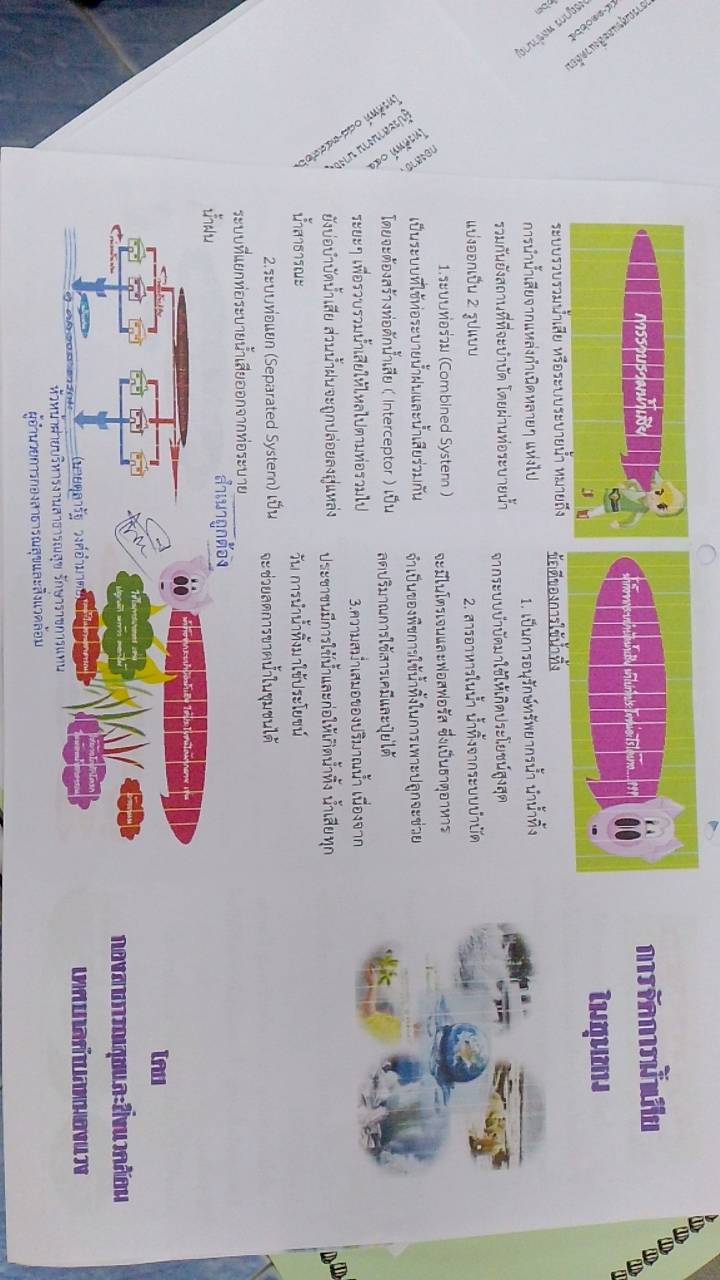 การรวบรวมน้ำเสีย
ระบบรวบรวมน้ำเสีย หรือระบบระบายน้ำ หมายถึง
การนำน้ำเสียจากแหล่งกำเนิดหลายๆ แห่งไป
รวมกันยังสถานที่ที่จะบำบัด โดยผ่านท่อระบายน้ำ
แบ่งออกเป็น 2 รูปแบบ
1.ระบบท่อร่วม (Combined System )
เป็นระบบที่ใช้ท่อระบายน้ำฝนและน้ำเสียร่วมกัน
โดยจะต้องสร้างท่อดักน้ำเสีย ( Interceptor ) เป็น
ระยะๆ เพื่อรวบรวมน้ำเสียให้ไหลไปตามท่อรวมไป
ยังบ่อบำบัดน้ำเสีย ส่วนน้ำฝนจะถูกปล่อยลงสู่แหล่ง
น้ำสาธารณะ
2.ระบบท่อแยก (Separated System) เป็น
ระบบที่แยกท่อระบายน้ำเสียออกจากท่อระบาย
น้ำฝน
สำเนาถูกต้อง
หัวหน้าฝ่ายบริหารงานสาธารณสุข รักษาราชการแทน
ผู้อำนวยการกองสาธารณสุขและสิ่งแวดล้อม
ข้อดีของการใช้น้ำทิ้ง
1. เป็นการอนุรักษ์ทรัพยากรน้ำ นำน้ำทิ้ง
จากระบบบำบัดมาใช้ให้เกิดประโยชน์สูงสุด
2. สารอาหารในน้ำ น้ำทิ้งจากระบบบำบัด
จะมีไนโตรเจนและฟอสฟอรัส ซึ่งเป็นธาตุอาหาร
จำเป็นของพืชการใช้น้ำทิ้งในการเพาะปลูกจะช่วย
ลดปริมาณการใช้สารเคมีและปุ๋ยได้
3.ความสม่ำเสมอของปริมาณน้ำ เนื่องจาก
ประชาชนมีการใช้น้ำและก่อให้เกิดน้ำทิ้ง น้ำเสียทุก
วัน การนำน้ำทิ้งมาใช้ประโยชน์
จะช่วยลดการขาดน้ำในชุมชนได้
การจัดการน้ำเสีย
ในชุมชน
โดย
กองสาธารณสุขและสิ่งแวดล้อม